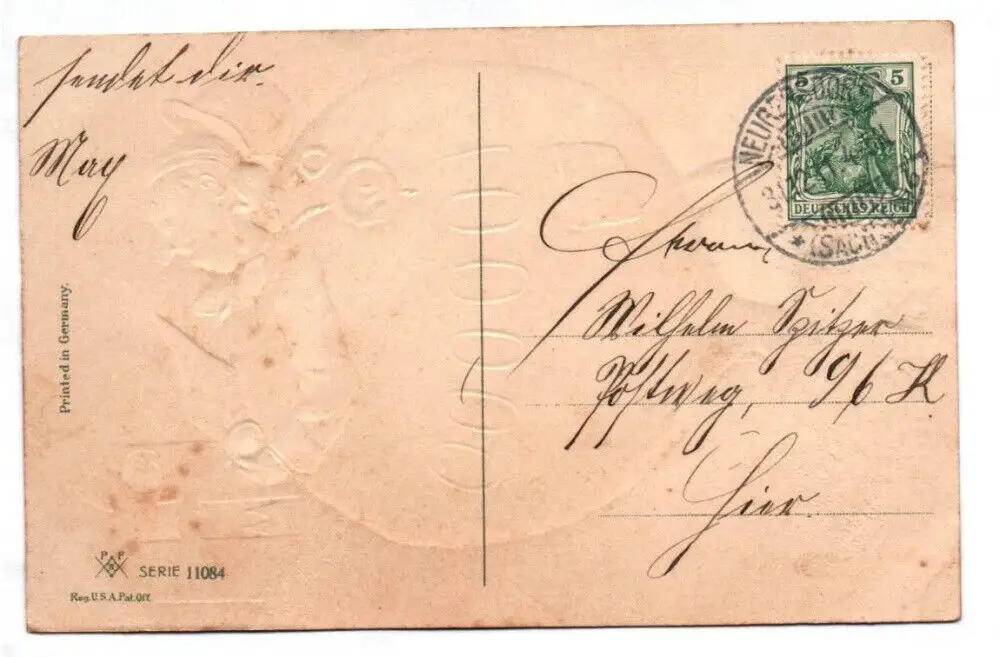 sendet dir.
Max
Printed in Germany.
PPP
SERIE 11084
Reg. U.S.A. Pat. Off.
5 5
DEUTSCHES REICH
NEUGERSDORF
* (SACHS
Herrn
Wilhelm Spitzer
Postweg, 96 K
Hier.